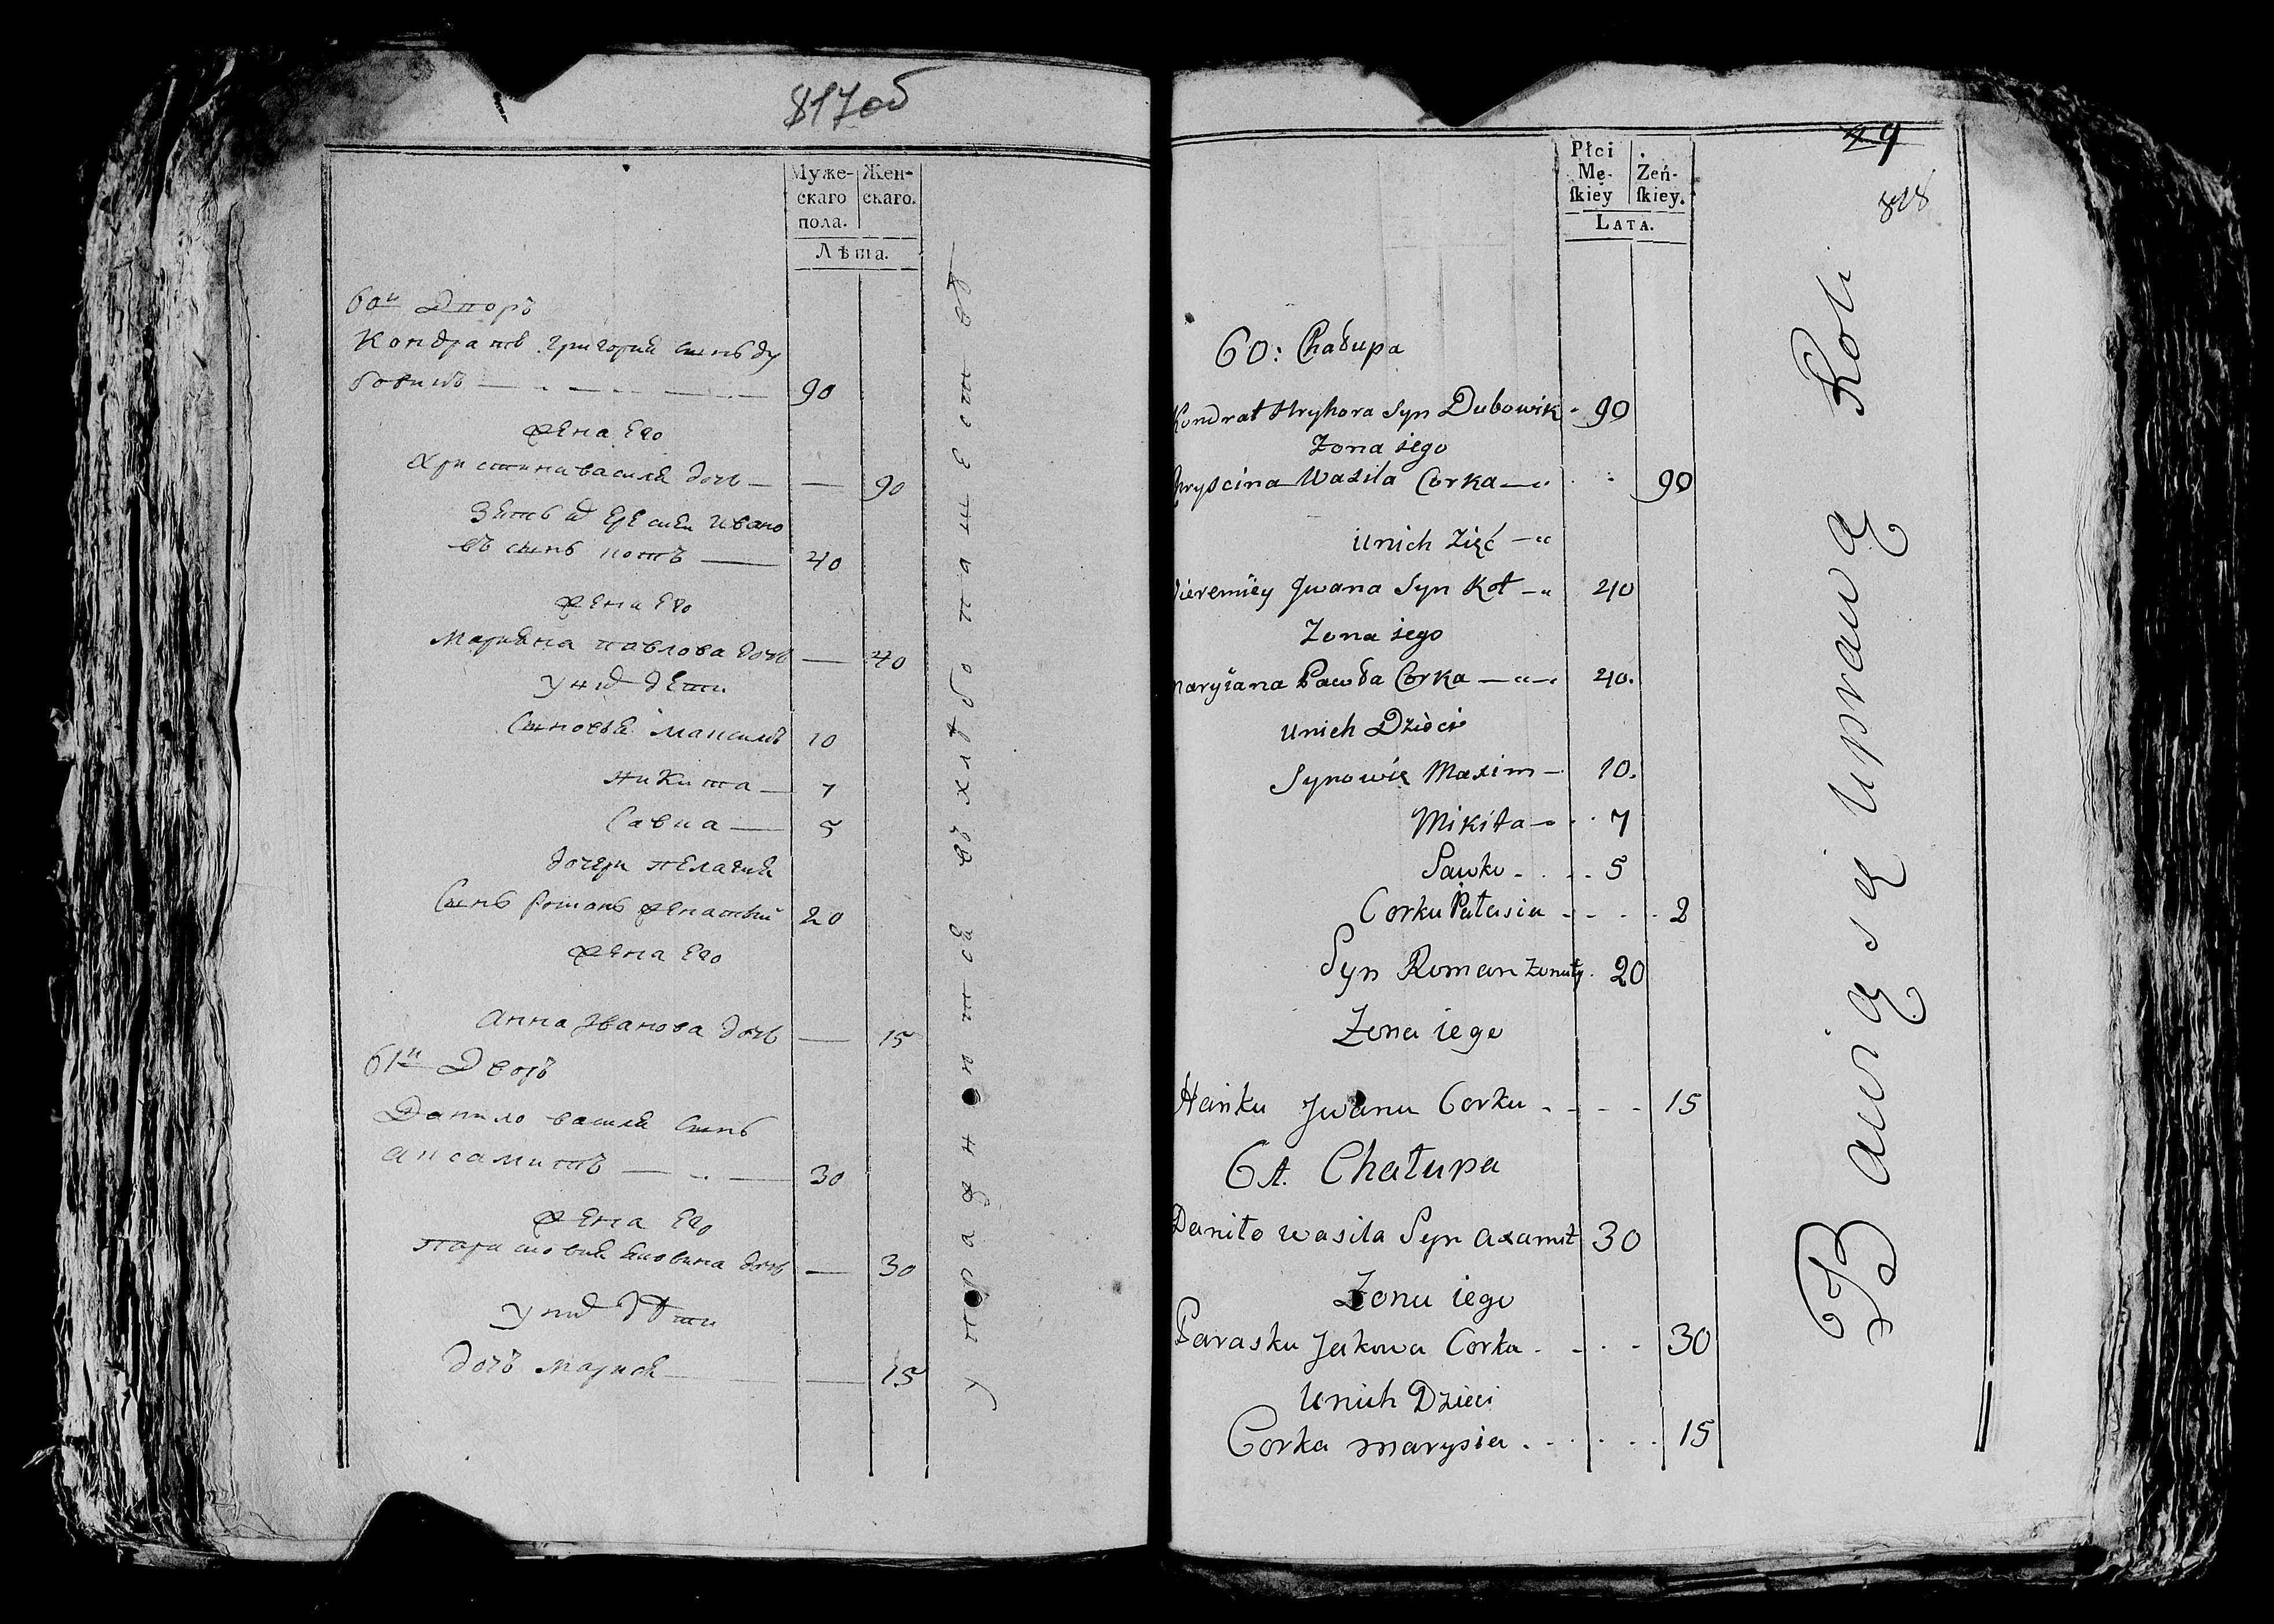 817об
Муже-
скаго
пола.
Жен-
скаго.
Лѣта.
60й Дворъ
Кондратъ григория сынъ ду
бовикъ 90
жена Его
христина василя дочь 90
Зять их Еремеи Ивано
въ сынъ котъ 40
жена Его
Марияна павлова дочь 40
У них дети
Сыновья Максимъ 10
Никита 7
Савка 5
дочери пелагия
Сынъ Романъ женатый 20
жена Его
Анна Иванова дочь 15
61й Дворъ
Данило василя Сынъ
аксамитъ 30
жена Его
Парасковия яковлева дочь 30
У них дѣти
дочь Марися 15
упражняются въ хлѣбопашествѣ
49
818
Płci
Mę-
skiey
Zeń-
skiey.
LATA.
60: Chałupa
Kondrat Hryhora Syn Dubowik 90
Zona iego
Chryscina Wasila Corka 90
unich Zięć
Jieremiey Jwana Syn Kot 40
Zona iego
maryiana Pawła Corka 40.
unich Dzieci
Synowie Maxim 10.
Mikita 7
Sawka 5
Corka Pałasia 2
Syn Roman żonaty 20
Zona iego
Hanka Jwana Corka 15
61. Chałupa
Daniło wasila Syn axamit 30
Zona iego
Paraska Jakowa Corka 30
Unich Dzieci
Corka marysia 15
Bawią się Uprawą Roli